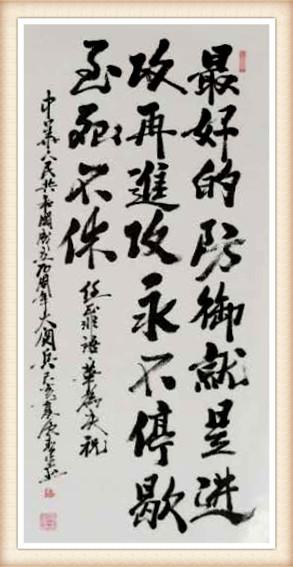 最好的防御就是进
攻再進攻永不停歇
至死不休 任正非语 華為
中華人民共和國成立70周年大阅兵己亥夏